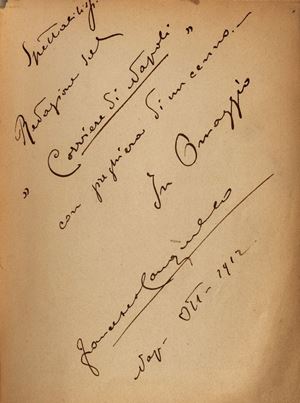 Spettabilis.
Redazione del
"Corriere di Napoli"
con preghiera di un cenno.—
In Omaggio
Francesco Cangiullo
Nap- Ott- 1912.